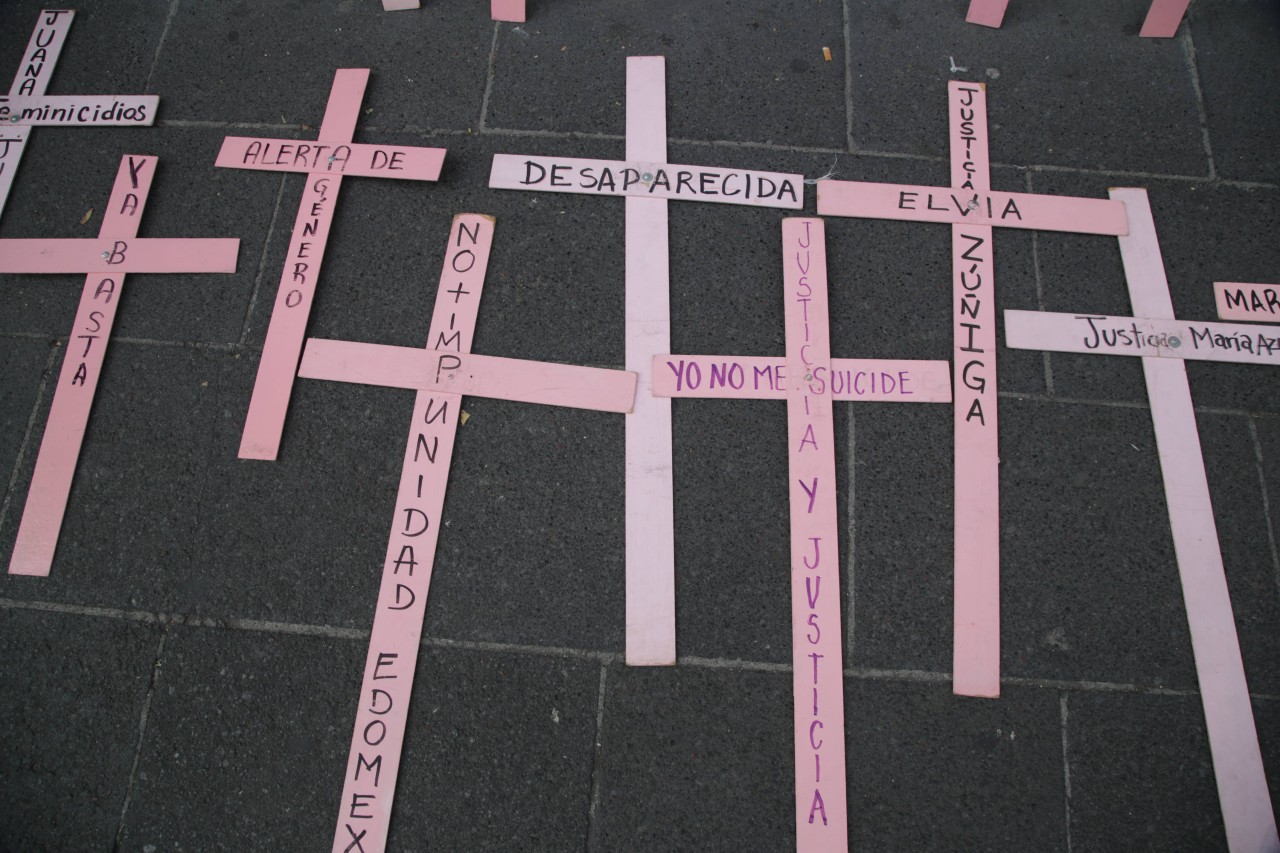 JUANA
feminicidios
YA
BASTA
ALERTA DE
GÉNERO
NO + IMPUNIDAD EDOMEX
DESAPARECIDA
JUSTICIA Y JUSTICIA
YO NO ME SUICIDE
JUSTICIA
ELVIA
ZÚÑIGA
Justicia María
MAR